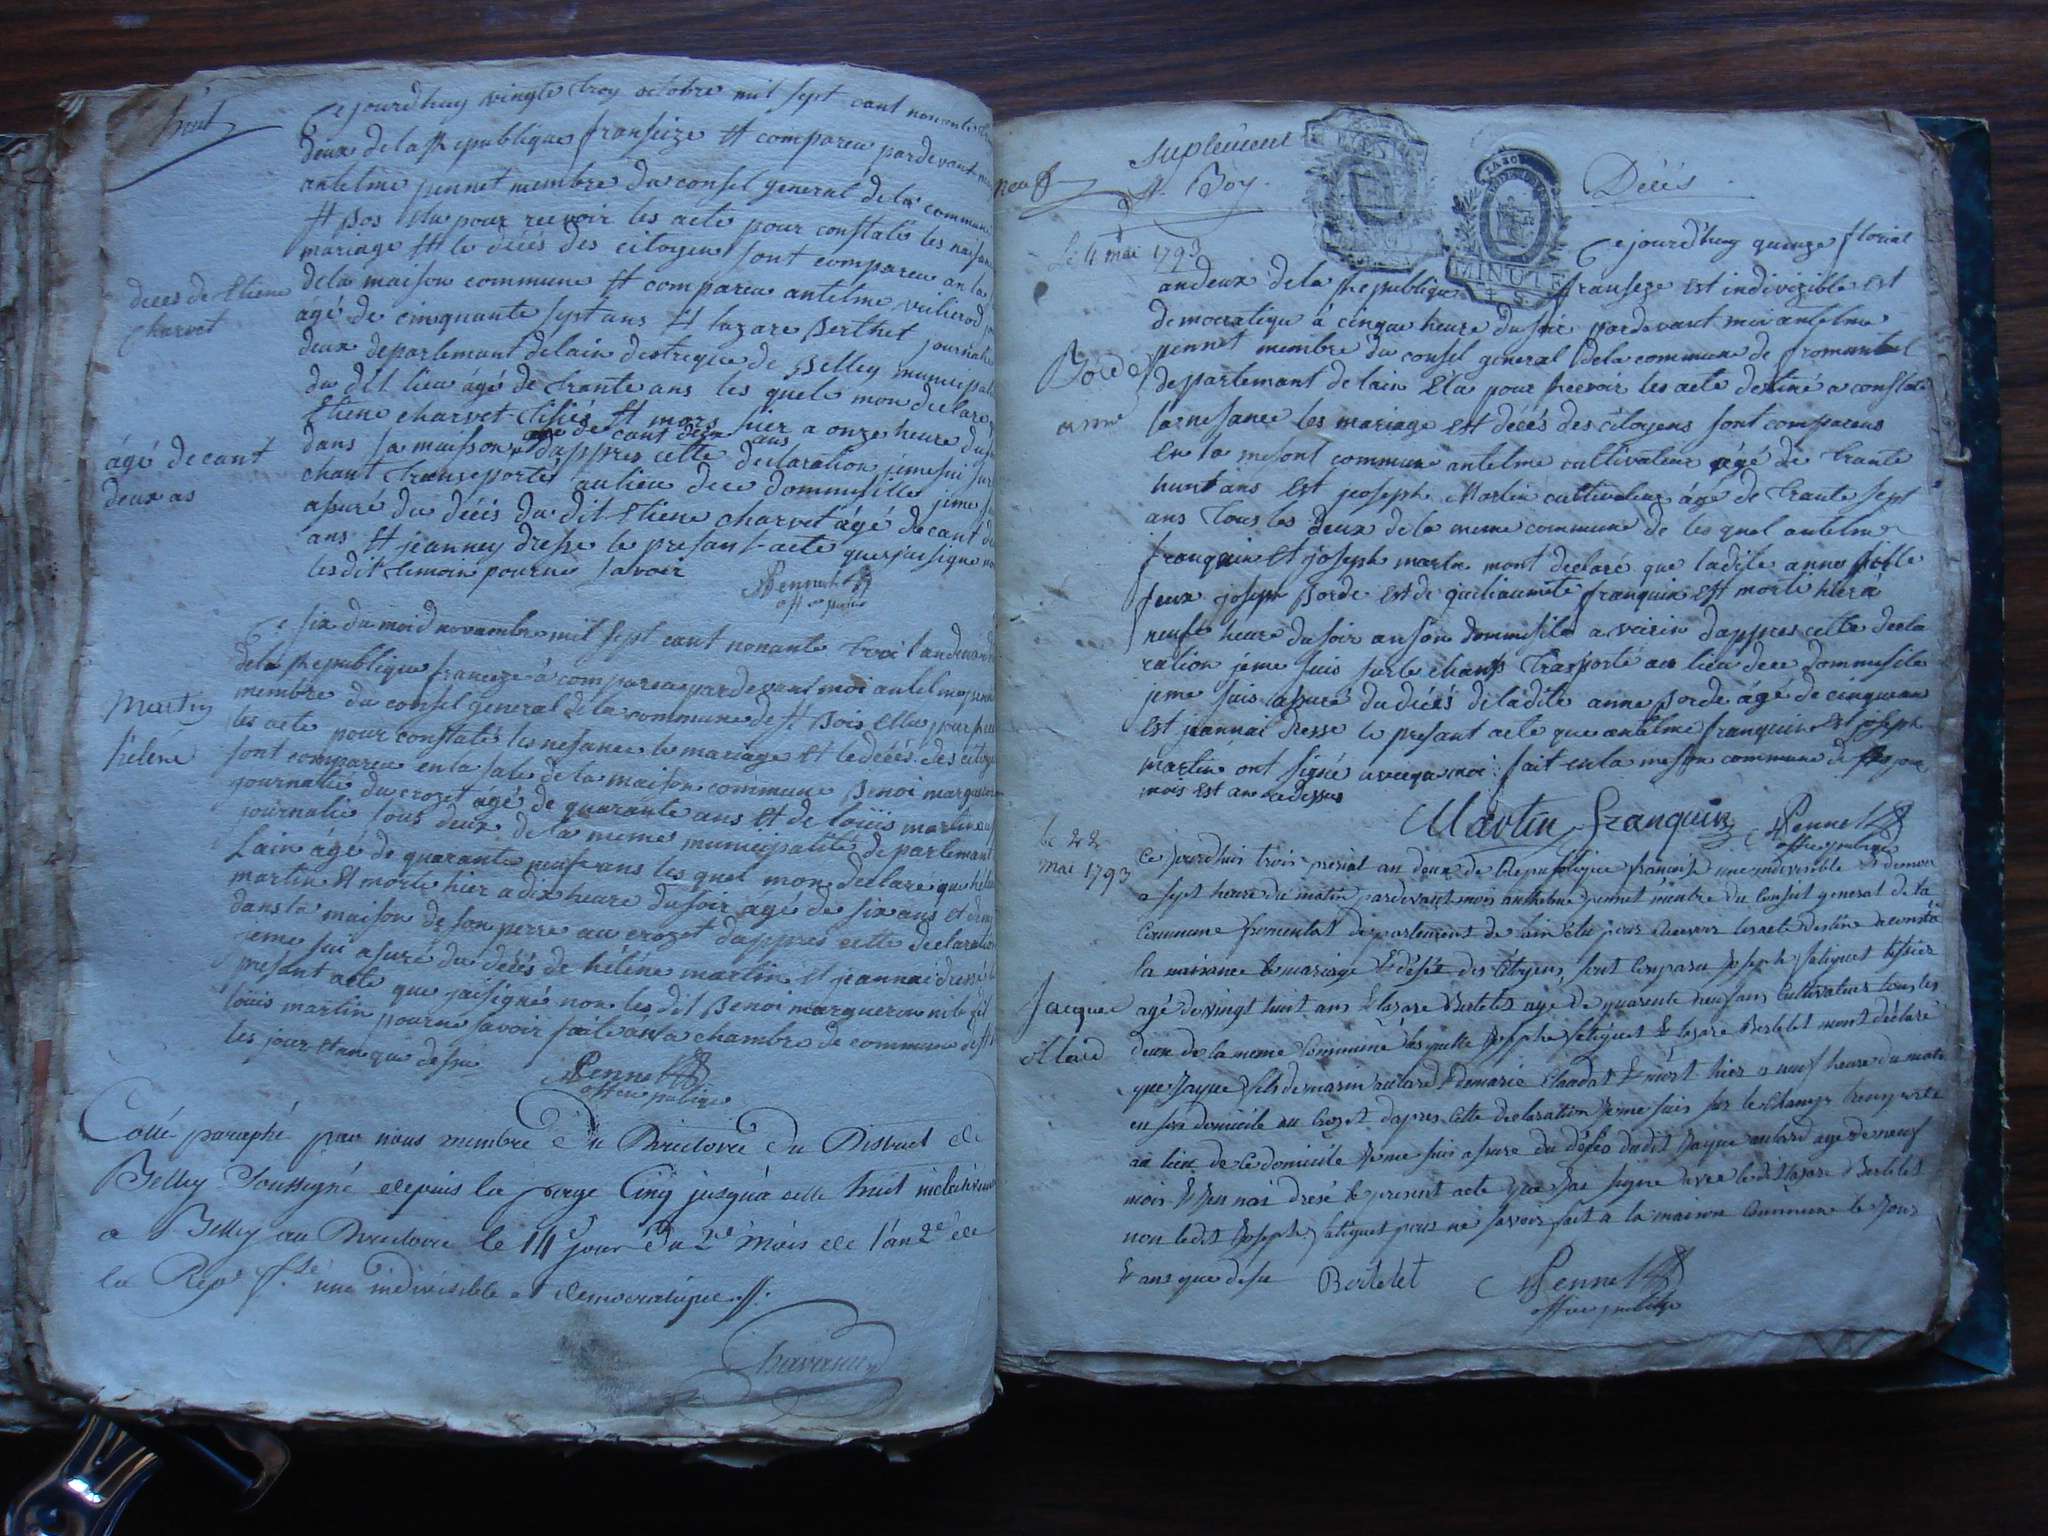 huit
Ce jourdhuy vingte troy octobre mil sept cant nonante
deux de la Republique franseize Et comparu pardevant
antelme pennet membre du consel general de la commune
St Bos élu pour recevoir les acte pour constate les
mariage Et le décés des citoyens sont comparu an la
decés de Etiene
charvet
de la maison commune Et comparu antelme
âgé de cinquante sept ans Et lazare Berthet journalie
deux departemant delain destreque de Belley
du dit lieu âgé de trante ans les quels mon declare
Etiene charvet Et mors hier a onze heure du
age de cant deux ans
dans sa maison d'appres cette declaration jeme sui sur
âgé de cant
deux as
chant transporté au lieu de ce dommisille jeme
asuré du décés du dit Etiene charvet âgé de cant
ans Et jeanney dresse le presant acte que jai signe
lesdit temoin pour ne savoir
Pennet
off publie
Ce six du moi d novambre mil sept cant nonante troi
de la Republique franceze à comparu pardevant moi antelme
membre du consel general de la commune de St Bois Elu pour
Martin
héléne
les acte pour constaté les nesance le mariage Et le décés des
sont comparu en la sale de la maison commune Benoi
journalié du crozet âgé de quarante ans Et de louis martin
journalie tous deux de la meme municipalité departemant
Lain âgé de quarante neuf ans les quel mon declaré que
martin Et morte hier a dix heure du soir agé de six ans et
dans la maison de son perre au crozet dappres cette declaration
jeme sui asuré du décés de héléne martin Et jeannai dressé
presant acte que jai signé non les dit Benoi marqueron ni le dit
louis martin pour ne savoir fait an la chambre de commune
les jour Et an que desu
Pennet
officie publique
Cotté paraphé par nous membre du Directoire du District de
Belley Soussigné depuis la page Cinq jusqu'a celle huit inclusivem
a Belley au Directoire le 14e jour du 2e Mois de l'an 2e de
la Repe f.se une indivisible et democratique //.
neuf
suplement
St Boy.
Décés
MINUTE
Le 4 mai 1793
Ce jourdhuy quinze florial
andeux de la Republique franseze est indivizible est
democratique à cinque heure du soir pardevant moi antelme
pennet membre du consel general de la commune de fromentel
Borde
anne
departemant de lain Elu pour recevoir les acte destiné a constate
la nesance les mariage Et décés des citoyens sont comparus
En la mesont commune antelme cultivateur âgé de trante
huit ans Est joseph Martin cultivateur âgé de trante sept
ans tous les deux de la meme commune de les quel antelme
franquin Et joseph martin mont declaré que ladite anne fille
feux joseph Borde Est de franquin Et morte hier à
neufe heure du soir an son dommisile a voisin dappres cette decla
ration jeme suis sur le champs trasporté au lieu de ce dommisile
jeme suis assuré du décés de ladite anne Borde âgé de cinque an
Est jeannai dresse le presant acte que antelme franquin Est joseph
martin ont signé avecque moi fait en la meson commune
mois Est an
Martin franquin Pennet
office publique
le 22
mai 1793
Ce jourdhui trois prerial an deux de la Republique francoise une indivisible Et democr
a sept heure du matin pardevant mois anthelme pennet membre du Conseil general de la
Commune fromentel departement de lain elu pour recevoir les acte destine a constat
la naissance le mariage Et déses des Citoyens sont Comparu Joseph
Jacque
allard
agé de vingt huit ans Et lazare Bertelet age de quarente neuf ans Cultivateur tous les
deux de la meme Commune lesquelle Joseph Et lazare Bertelet mont déclaré
que Jaque fils de marin aulard Et de marie Et mort hier a neuf heure du matin
en son domicile au Crozet dapres cette declaration Jeme suis sur le Champs transporté
au lieu de ce domicile Jeme suis asuré du déses dudit Jaque aulard age de neuf
mois Et Jen nai dresé le present acte que Jai signe avec le dit lazare Bertelet
non ledit Joseph pour ne savoir fait a la maison Commune le Jour
Et ans que desu Bertelet Pennet
office publique